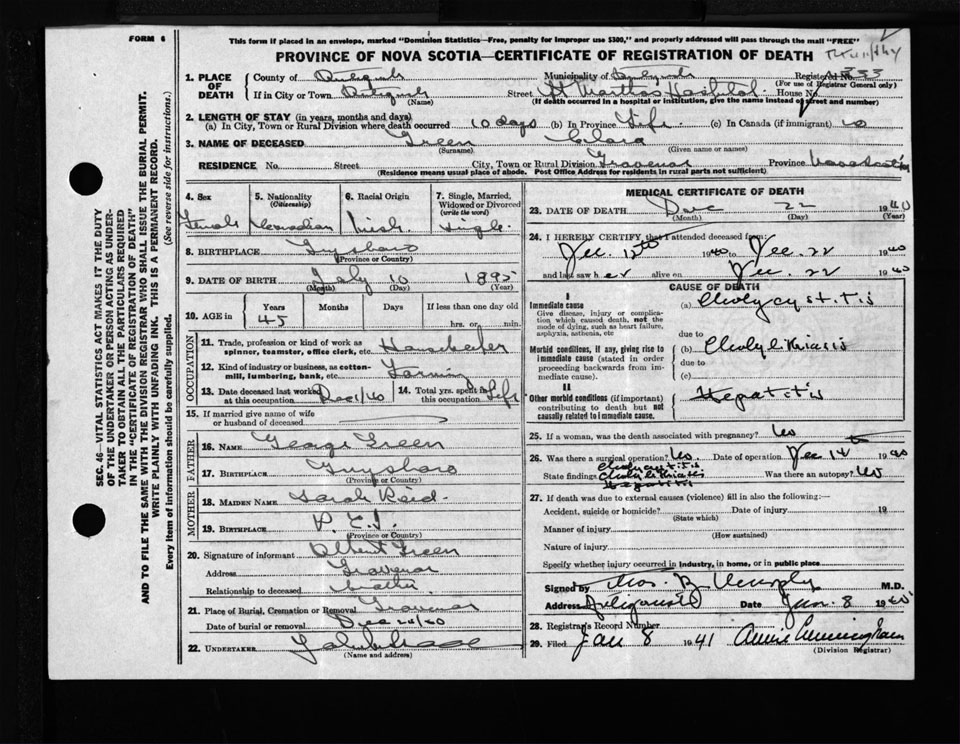 FORM 6
This form if placed in an envelope, marked "Dominion Statistics—Free, penalty for improper use $300," and properly addressed will pass through the mail "FREE"
PROVINCE OF NOVA SCOTIA—CERTIFICATE OF REGISTRATION OF DEATH
1. PLACE OF DEATH
County of
Municipality of
Registered No. 333
(For use of Registrar General only)
If in City or Town
(Name)
Street St Marthas Hospital House No.
(If death occurred in a hospital or institution, give the name instead of street and number)
2. LENGTH OF STAY (in years, months and days)
(a) In City, Town or Rural Division where death occurred 10 days (b) In Province Life (c) In Canada (if immigrant)
3. NAME OF DECEASED Green Clara
(Surname) (Given name or names)
RESIDENCE No. Street City, Town or Rural Division Province Nova Scotia
(Residence means usual place of abode. Post Office Address for residents in rural parts not sufficient)
4. Sex
Female
5. Nationality (Citizenship)
Canadian
6. Racial Origin
Irish
7. Single, Married, Widowed or Divorced (write the word)
Single
8. BIRTHPLACE Guysboro
(Province or Country)
9. DATE OF BIRTH July 10 1895
(Month) (Day) (Year)
10. AGE in Years Months Days If less than one day old
45 hrs. or min.
OCCUPATION
11. Trade, profession or kind of work as spinner, teamster, office clerk, etc. Housekeeper
12. Kind of industry or business, as cotton-mill, lumbering, bank, etc. Farming
13. Date deceased last worked at this occupation Dec 1/40
14. Total yrs. spent in this occupation Life
15. If married give name of wife or husband of deceased
FATHER
16. NAME George Green
17. BIRTHPLACE Guysboro
(Province or Country)
MOTHER
18. MAIDEN NAME Sarah Reid
19. BIRTHPLACE P. E. I.
(Province or Country)
20. Signature of informant Albert Green
Address
Relationship to deceased brother
21. Place of Burial, Cremation or Removal
Date of burial or removal Dec 24/40
22. UNDERTAKER
(Name and address)
MEDICAL CERTIFICATE OF DEATH
23. DATE OF DEATH Dec 22 1940
(Month) (Day) (Year)
24. I HEREBY CERTIFY that I attended deceased from:
Dec. 12th 1940 to Dec. 22 1940
and last saw her alive on Dec. 22 1940
CAUSE OF DEATH
I
Immediate cause (a) Cholycystitis
Give disease, injury or complication which caused death, not the mode of dying, such as heart failure, asphyxia, asthenia, etc
due to
Morbid conditions, if any, giving rise to immediate cause (stated in order proceeding backwards from immediate cause).
(b) Cholylithiasis
due to
(c)
II
Other morbid conditions (if important) contributing to death but not causally related to immediate cause.
Hepatitis
25. If a woman, was the death associated with pregnancy? No
26. Was there a surgical operation? Date of operation Dec 14 1940
State findings Cholycystitis Cholylithiasis Hepatitis Was there an autopsy? No
27. If death was due to external causes (violence) fill in also the following:—
Accident, suicide or homicide? Date of injury 19
(State which)
Manner of injury
(How sustained)
Nature of injury
Specify whether injury occurred in industry, in home, or in public place
Signed by Thos. B. Murphy M.D.
Address Antigonish Date Jan. 8 1940
28. Registrar's Record Number
29. Filed Jan 8 1941 Annie Cunningham
(Division Registrar)
SEC. 46—VITAL STATISTICS ACT MAKES IT THE DUTY OF THE UNDERTAKER OR PERSON ACTING AS UNDERTAKER TO OBTAIN ALL THE PARTICULARS REQUIRED IN THE "CERTIFICATE OF REGISTRATION OF DEATH" AND TO FILE THE SAME WITH THE DIVISION REGISTRAR WHO SHALL ISSUE THE BURIAL PERMIT.
WRITE PLAINLY WITH UNFADING INK. THIS IS A PERMANENT RECORD.
Every item of information should be carefully supplied. (See reverse side for instructions.)